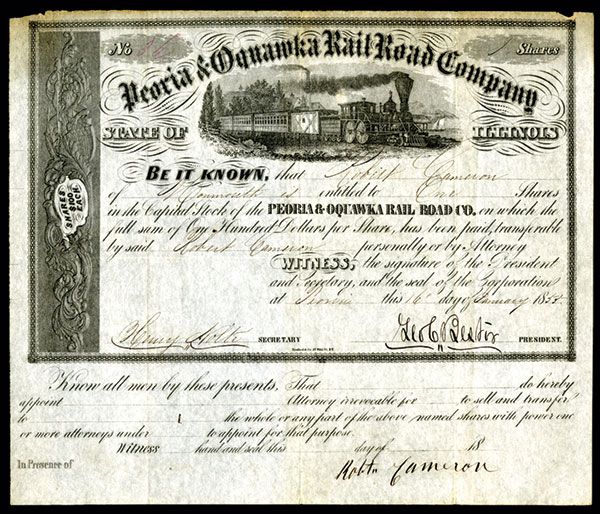 No 86 1 Shares
Peoria & Oquawka Rail Road Company
STATE OF ILLINOIS
BE IT KNOWN, that Robert Cameron
of Monmouth is entitled to One Shares
in the Capital Stock of the PEORIA & OQUAWKA RAIL ROAD CO. on which the
full sum of One Hundred Dollars per Share, has been paid, transferable
by said Robert Cameron personally or by Attorney
WITNESS, the signature of the President
and Secretary, and the seal of the Corporation
at Peoria this 16 day of January 185
SHARES $100 EACH
SECRETARY PRESIDENT.
Know all men by these presents, That do hereby
appoint Attorney irrevocable for to sell and transfer
to the whole or any part of the above named shares with power one
or more attorneys under to appoint for that purpose.
Witness hand and seal this day of 18
In Presence of
Robt Cameron